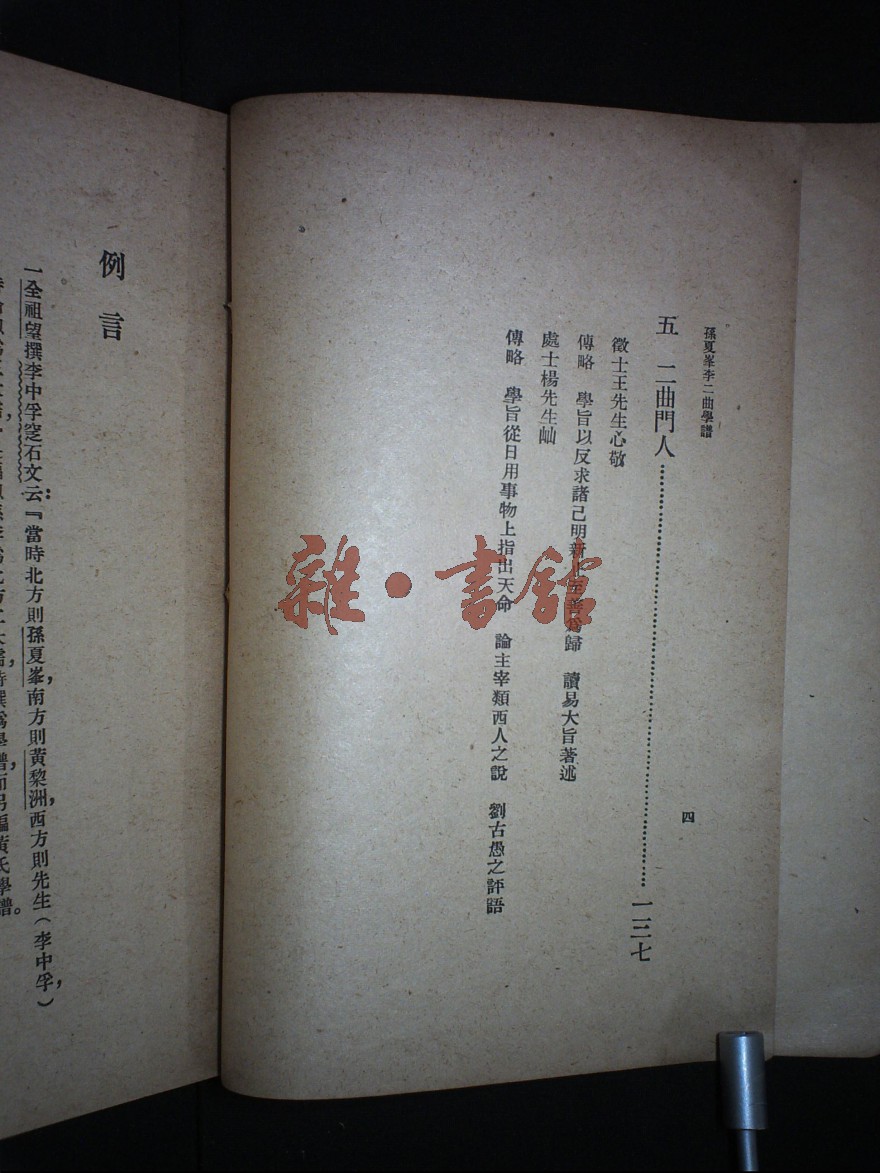 孫夏峯李二曲學譜
四
五　二曲門人……一三七
徵士王先生心敬
傳略　學旨以反求諸己明新止至善爲歸　讀易大旨著述
處士楊先生屾
傳略　學旨從日用事物上指出天命　論主宰類西人之說　劉古愚之評語
雜·書館
例言
一全祖望撰李中孚窆石文云：『當時北方則孫夏峯，南方則黃黎洲，西方則先生（李中孚，）